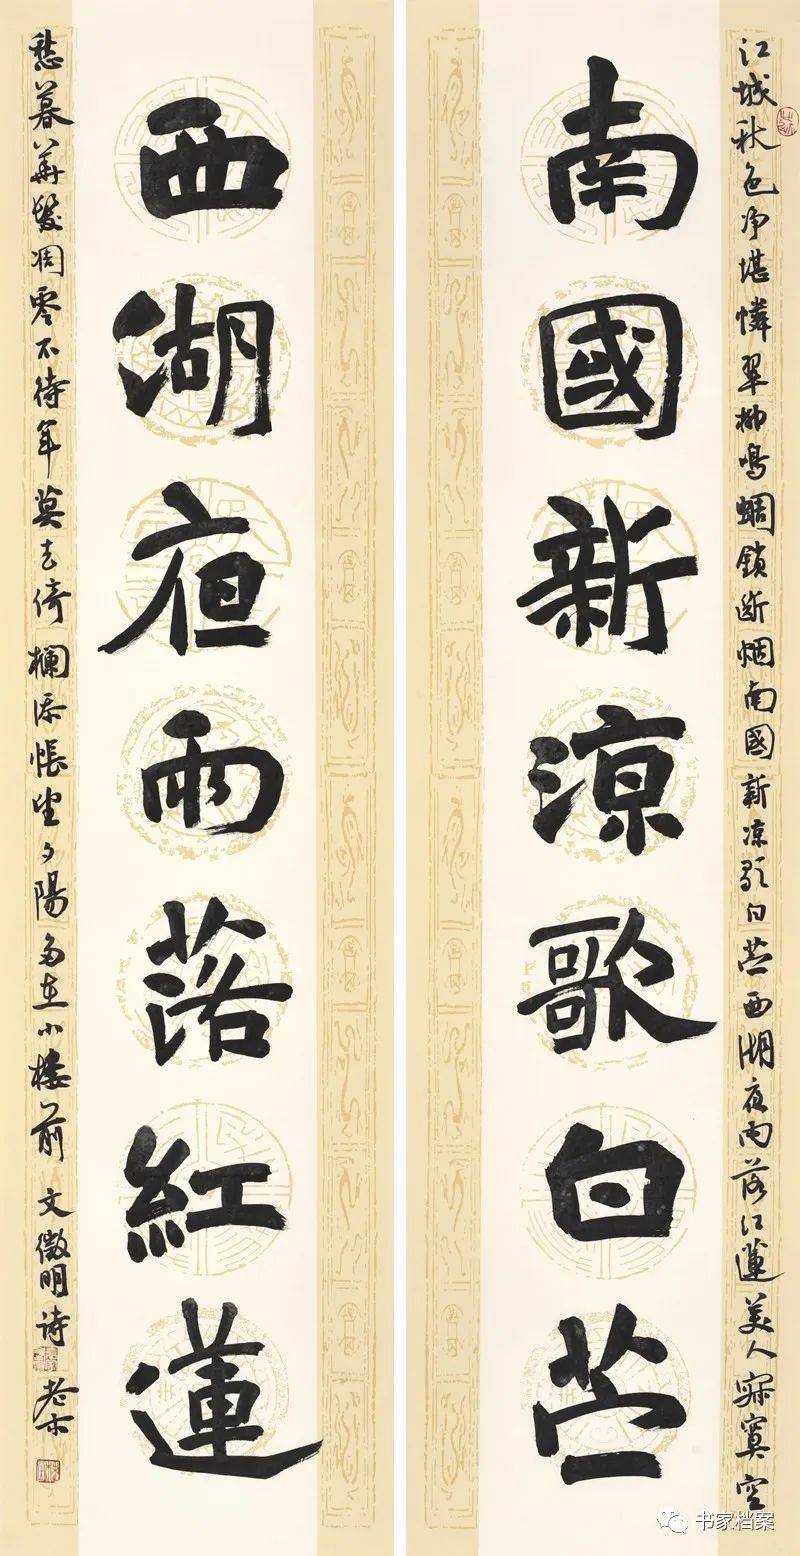 江城秋色净堪憐翠柳鳴蜩鎖断烟南國新凉歌白苎西湖夜雨落红蓮美人寂寞空
南國新涼歌白苎
西湖夜雨落紅蓮
愁暮華髮凋零不待年莫去倚欄添悵望夕陽多在小樓前 文徵明诗
老木
书家档案